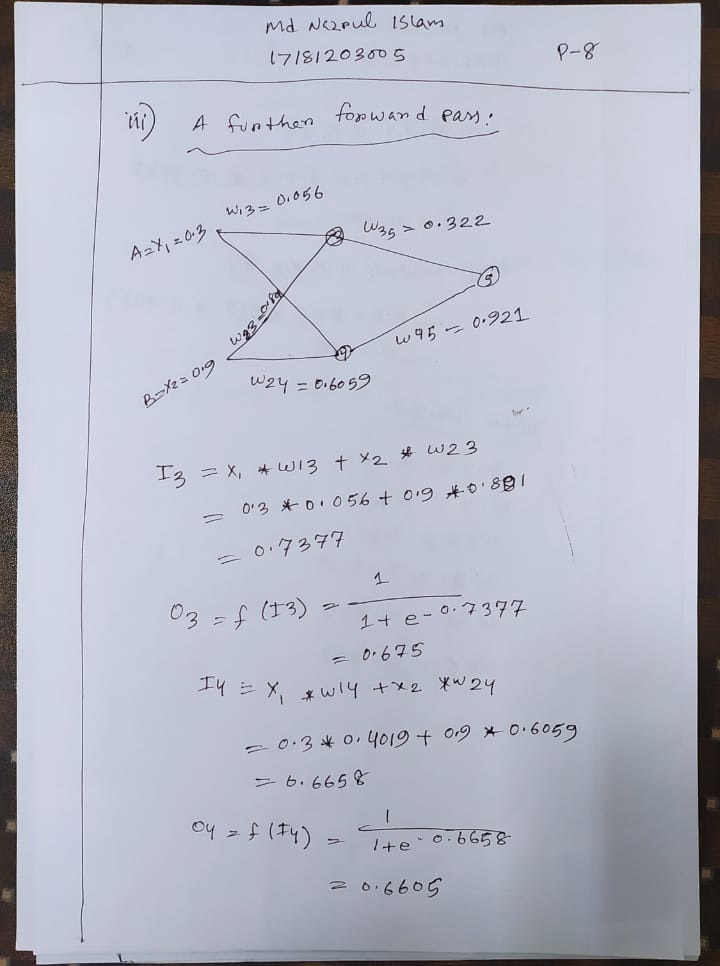 Md Nazrul Islam
17181203005
P-8
iii) A further forward pass:
W13 = 0.056
A=X1=0.3
3
W35 = 0.322
5
W45 = 0.921
4
B=X2=0.9
W24 = 0.6059
I3 = X1 * W13 + X2 * W23
= 0.3 * 0.056 + 0.9 * 0.801
= 0.7377
O3 = f (I3) = 1 / 1 + e-0.7377
= 0.675
I4 = X1 * W14 + X2 * W24
= 0.3 * 0.4019 + 0.9 * 0.6059
= 0.6658
O4 = f (I4) = 1 / 1+e-0.6658
= 0.6605